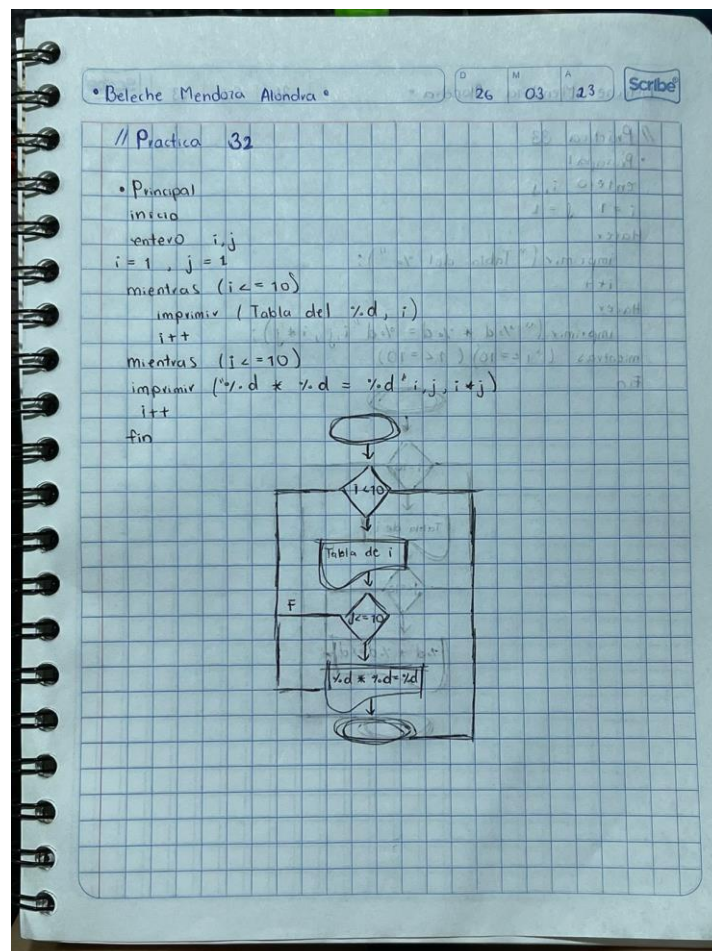 • Beleche Mendoza Alondra •
D M A
26 03 23
Scribe
// Practica 32
• Principal
inicio
entero i,j
i = 1 , j = 1
mientras (i <= 10)
imprimir ( Tabla del %d, i)
i++
mientras (j <= 10)
imprimir ("%d * %d = %d" i,j, i*j)
i++
fin
i<10
Tabla de i
F
j<=10
%d * %d=%d